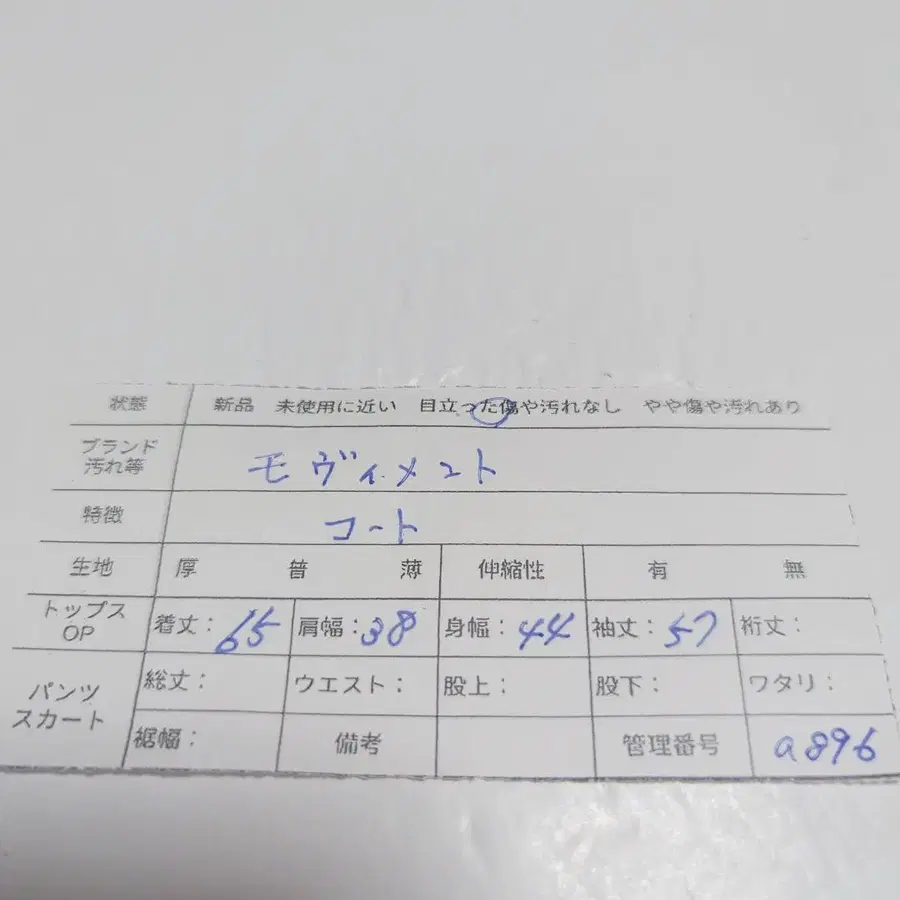 状態 新品 未使用に近い 目立った傷や汚れなし やや傷や汚れあり
ブランド
汚れ等 モヴィメント
特徴 コート
生地 厚 普 薄 伸縮性 有 無
トップス
OP 着丈：65 肩幅：38 身幅：44 袖丈：57 裄丈：
パンツ
スカート 総丈： ウエスト： 股上： 股下： ワタリ：
裾幅： 備考 管理番号 a896